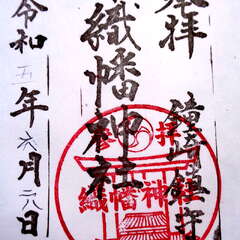 奉拝
鐘崎鎮座
織幡神社
参拝
織幡神社
令和五年六月二八日